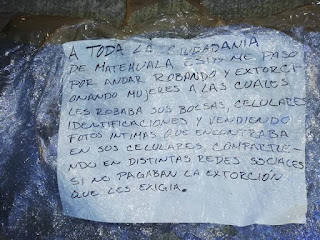 A TODA LA CIUDADANIA
DE MATEHUALA ESTO ME PASO
POR ANDAR ROBANDO Y EXTORCI
ONANDO MUJERES A LAS CUALES
LES ROBABA SUS BOLSAS, CELULARES
IDENTIFICACIONES Y VENDIENDO
FOTOS INTIMAS QUE ENCONTRABA
EN SUS CELULARES, COMPARTIE-
NDO EN DISTINTAS REDES SOCIALES
SI NO PAGABAN LA EXTORCIÓN
QUE LES EXIGIA.